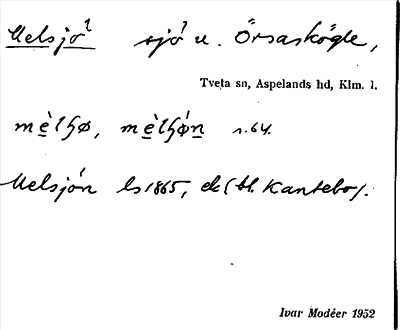 Melsjö? sjö? u. Örsaskögle,
Tveta sn, Aspelands hd, Klm. l.
mè̲lɧø, mè̲lɧó̲n̲ s.64.
Melsjön ls 1865, ek (bl. Kantebo).
Ivar Modéer 1952